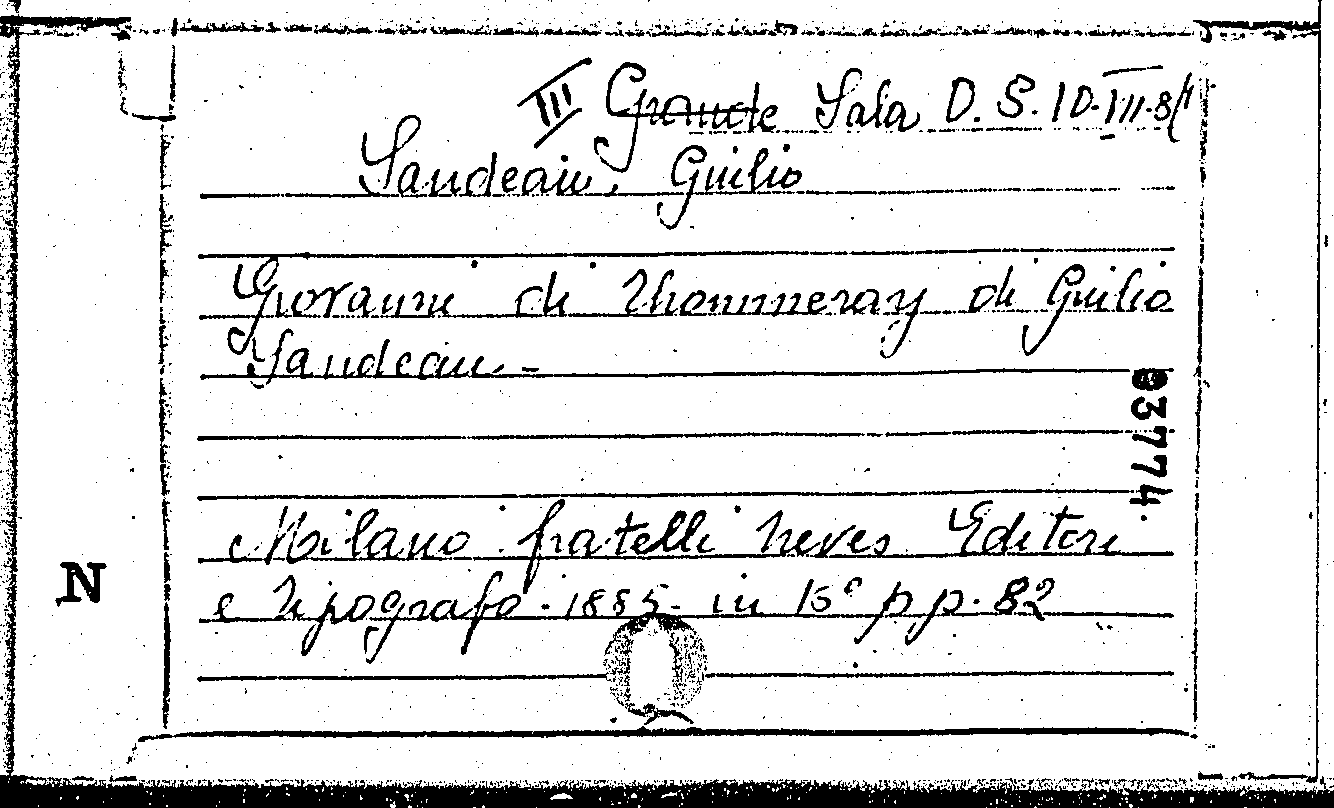 III Grande Sala D. S. 10. III. 8/4
Sandeau, Giulio
Giovanni di Thommeray di Giulio
Sandeau. -
83774
Milano fratelli Treves Editori
e Tipografo. 1885. in 15° pp. 82
N